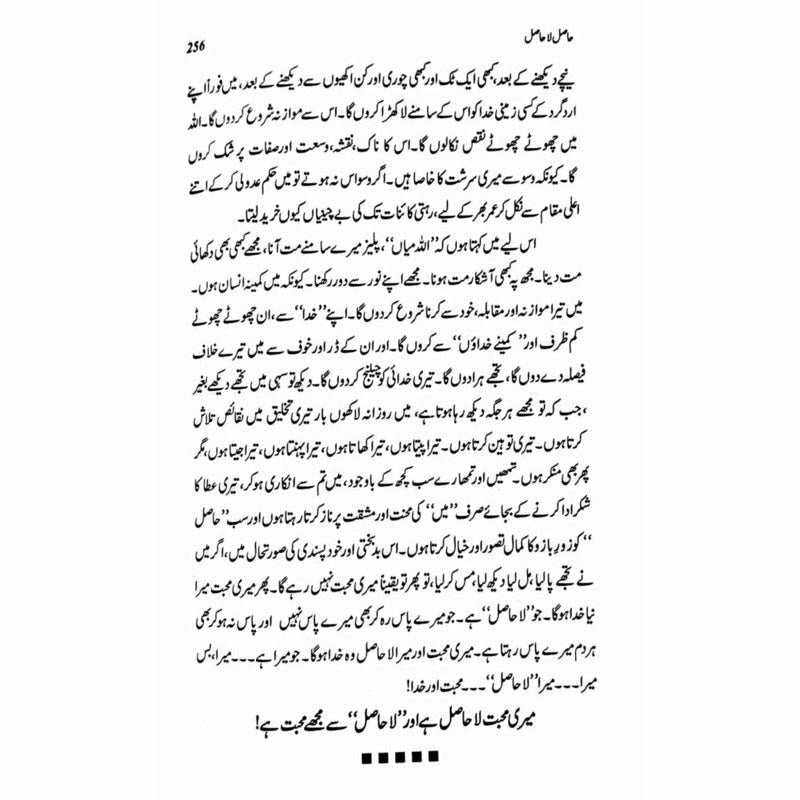 حاصل لا حاصل
256
نیچے دیکھنے کے بعد، کبھی ایک ٹک اور کبھی چوری اور کن اکھیوں سے دیکھنے کے بعد، میں فوراً اپنے
اردگرد کے کسی زمینی خدا کو اس کے سامنے لا کھڑا کروں گا۔ اس سے موازنہ شروع کر دوں گا۔ اللہ
میں چھوٹے چھوٹے نقص نکالوں گا۔ اس کا ناک، نقشہ، وسعت اور صفات پر شک کروں
گا۔ کیونکہ وسوسے میری سرشت کا خاصا ہیں۔ اگر وسواس نہ ہوتے تو میں حکم عدولی کر کے اتنے
اعلیٰ مقام سے نکل کر عمر بھر کے لیے، رہتی کائنات تک کی بے چینیاں کیوں خرید لیتا۔
اس لیے میں کہتا ہوں کہ ”اللہ میاں“، پلیز میرے سامنے مت آنا، مجھے کبھی بھی دکھائی
مت دینا۔ مجھ پہ کبھی آشکار مت ہونا۔ مجھے اپنے نور سے دور رکھنا۔ کیونکہ میں کمینہ انسان ہوں۔
میں تیرا موازنہ اور مقابلہ، خود سے کرنا شروع کر دوں گا۔ اپنے ”خدا“ سے، ان چھوٹے چھوٹے
کم ظرف اور ”کمینے خداؤں“ سے کروں گا۔ اور ان کے ڈر اور خوف سے میں تیرے خلاف
فیصلہ دے دوں گا، تجھے ہرا دوں گا۔ تیری خدائی کو چیلنج کر دوں گا۔ دیکھ تو سہی میں تجھے دیکھے بغیر
، جب کہ تو مجھے ہر جگہ دیکھ رہا ہوتا ہے، میں روزانہ لاکھوں بار تیری تخلیق میں نقائص تلاش
کرتا ہوں۔ تیری توہین کرتا ہوں۔ تیرا پیتا ہوں، تیرا کھاتا ہوں، تیرا پہنتا ہوں، تیرا جیتا ہوں، مگر
پھر بھی منکر ہوں۔ تمھیں اور تمھارے سب کچھ کے باوجود، میں تم سے انکاری ہو کر، تیری عطا کا
شکر ادا کرنے کے بجائے صرف ”میں“ کی محنت اور مشقت پر ناز کرتا رہتا ہوں اور سب ”حاصل
“ کو زورِ بازو کا کمال تصور اور خیال کرتا ہوں۔ اس بدبختی اور خود پسندی کی صورتحال میں، اگر میں
نے تجھے پا لیا، مل لیا دیکھ لیا، مس کر لیا، تو پھر تو یقیناً میری محبت نہیں رہے گا۔ پھر میری محبت میرا
نیا خدا ہو گا۔ جو ”لا حاصل“ ہے۔ جو میرے پاس رہ کر بھی میرے پاس نہیں اور پاس نہ ہو کر بھی
ہر دم میرے پاس رہتا ہے۔ میری محبت اور میرا لا حاصل وہ خدا ہو گا۔ جو میرا ہے۔۔۔ میرا، بس
میرا۔۔۔ میرا ”لا حاصل“۔۔۔ محبت اور خدا!
میری محبت لا حاصل ہے اور ”لا حاصل“ سے مجھے محبت ہے!